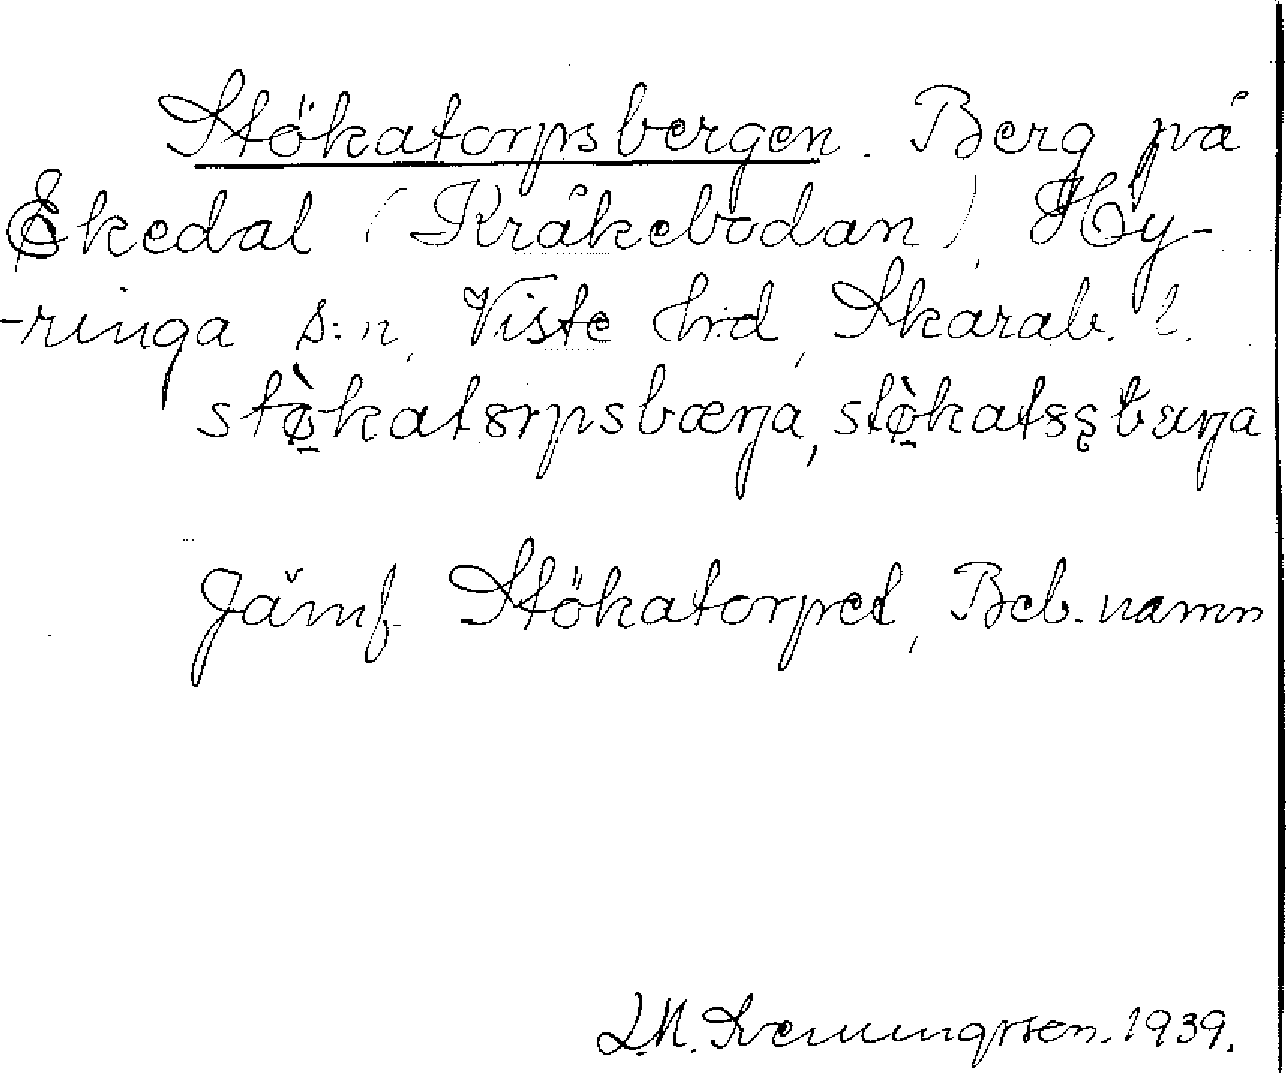 Stökatorpsbergen. Berg på
Ekedal (Kråkebodan) Hy-
-ringa s:n, Viste hrd, Skarab. l.
stø̀katɔrpsbærja, stø̀katɔʂbærja
Jämf. Stökatorpet, Beb. namn
1939.